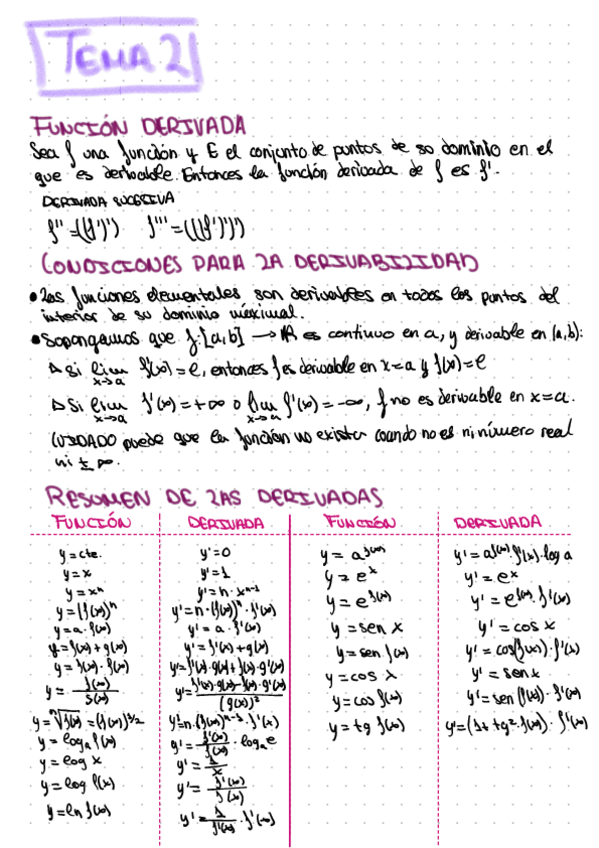 TEMA 2
FUNCIÓN DERIVADA
Sea f una función y E el conjunto de puntos de su dominio en el
que es derivable. Entonces la función derivada de f es f'.
DERIVADA SUCESIVA
f''=((f')') f'''=(((f')')')
CONDICIONES PARA LA DERIVABILIDAD
• Las funciones elementales son derivables en todos los puntos del
interior de su dominio máximal.
• Supongamos que f:[a,b] → ℝ es continuo en a, y derivable en (a,b):
▷ Si lim x→a f'(x)=e, entonces f es derivable en x=a y f(x)=e
▷ Si lim x→a f'(x)=+∞ o lim x→a f'(x)=-∞, f no es derivable en x=a.
CUIDADO puede que la función no exista cuando no es ni número real
ni ±∞.
RESUMEN DE LAS DERIVADAS
FUNCIÓN DERIVADA FUNCIÓN DERIVADA
y=cte. y'=0 y=a^f(x) y'=a^f(x)·f'(x)·log a
y=x y'=1 y=e^x y'=e^x
y=x^n y'=n·x^n-1 y=e^f(x) y'=e^f(x)·f'(x)
y=(f(x))^n y'=n·(f(x))^n·f'(x) y=sen x y'=cos x
y=a·f(x) y'=a·f'(x) y=sen f(x) y'=cos(f(x))·f'(x)
y=f(x)+g(x) y'=f'(x)+g(x) y=cos x y'=sen x
y=f(x)·f(x) y'=f'(x)·g(x)+f(x)·g'(x) y=cos f(x) y'=sen(f(x))·f'(x)
y=f(x)/g(x) y'=f'(x)·g(x)-f(x)·g'(x)/(g(x))² y=tg f(x) y'=(1+tg²·f(x))·f'(x)
y=log_a f(x) y'=f'(x)/f(x)·log_a e
y=log x y'=1/x
y=log f(x) y'=f'(x)/f(x)
y=ln f(x) y'=1/f'(x)·f'(x)